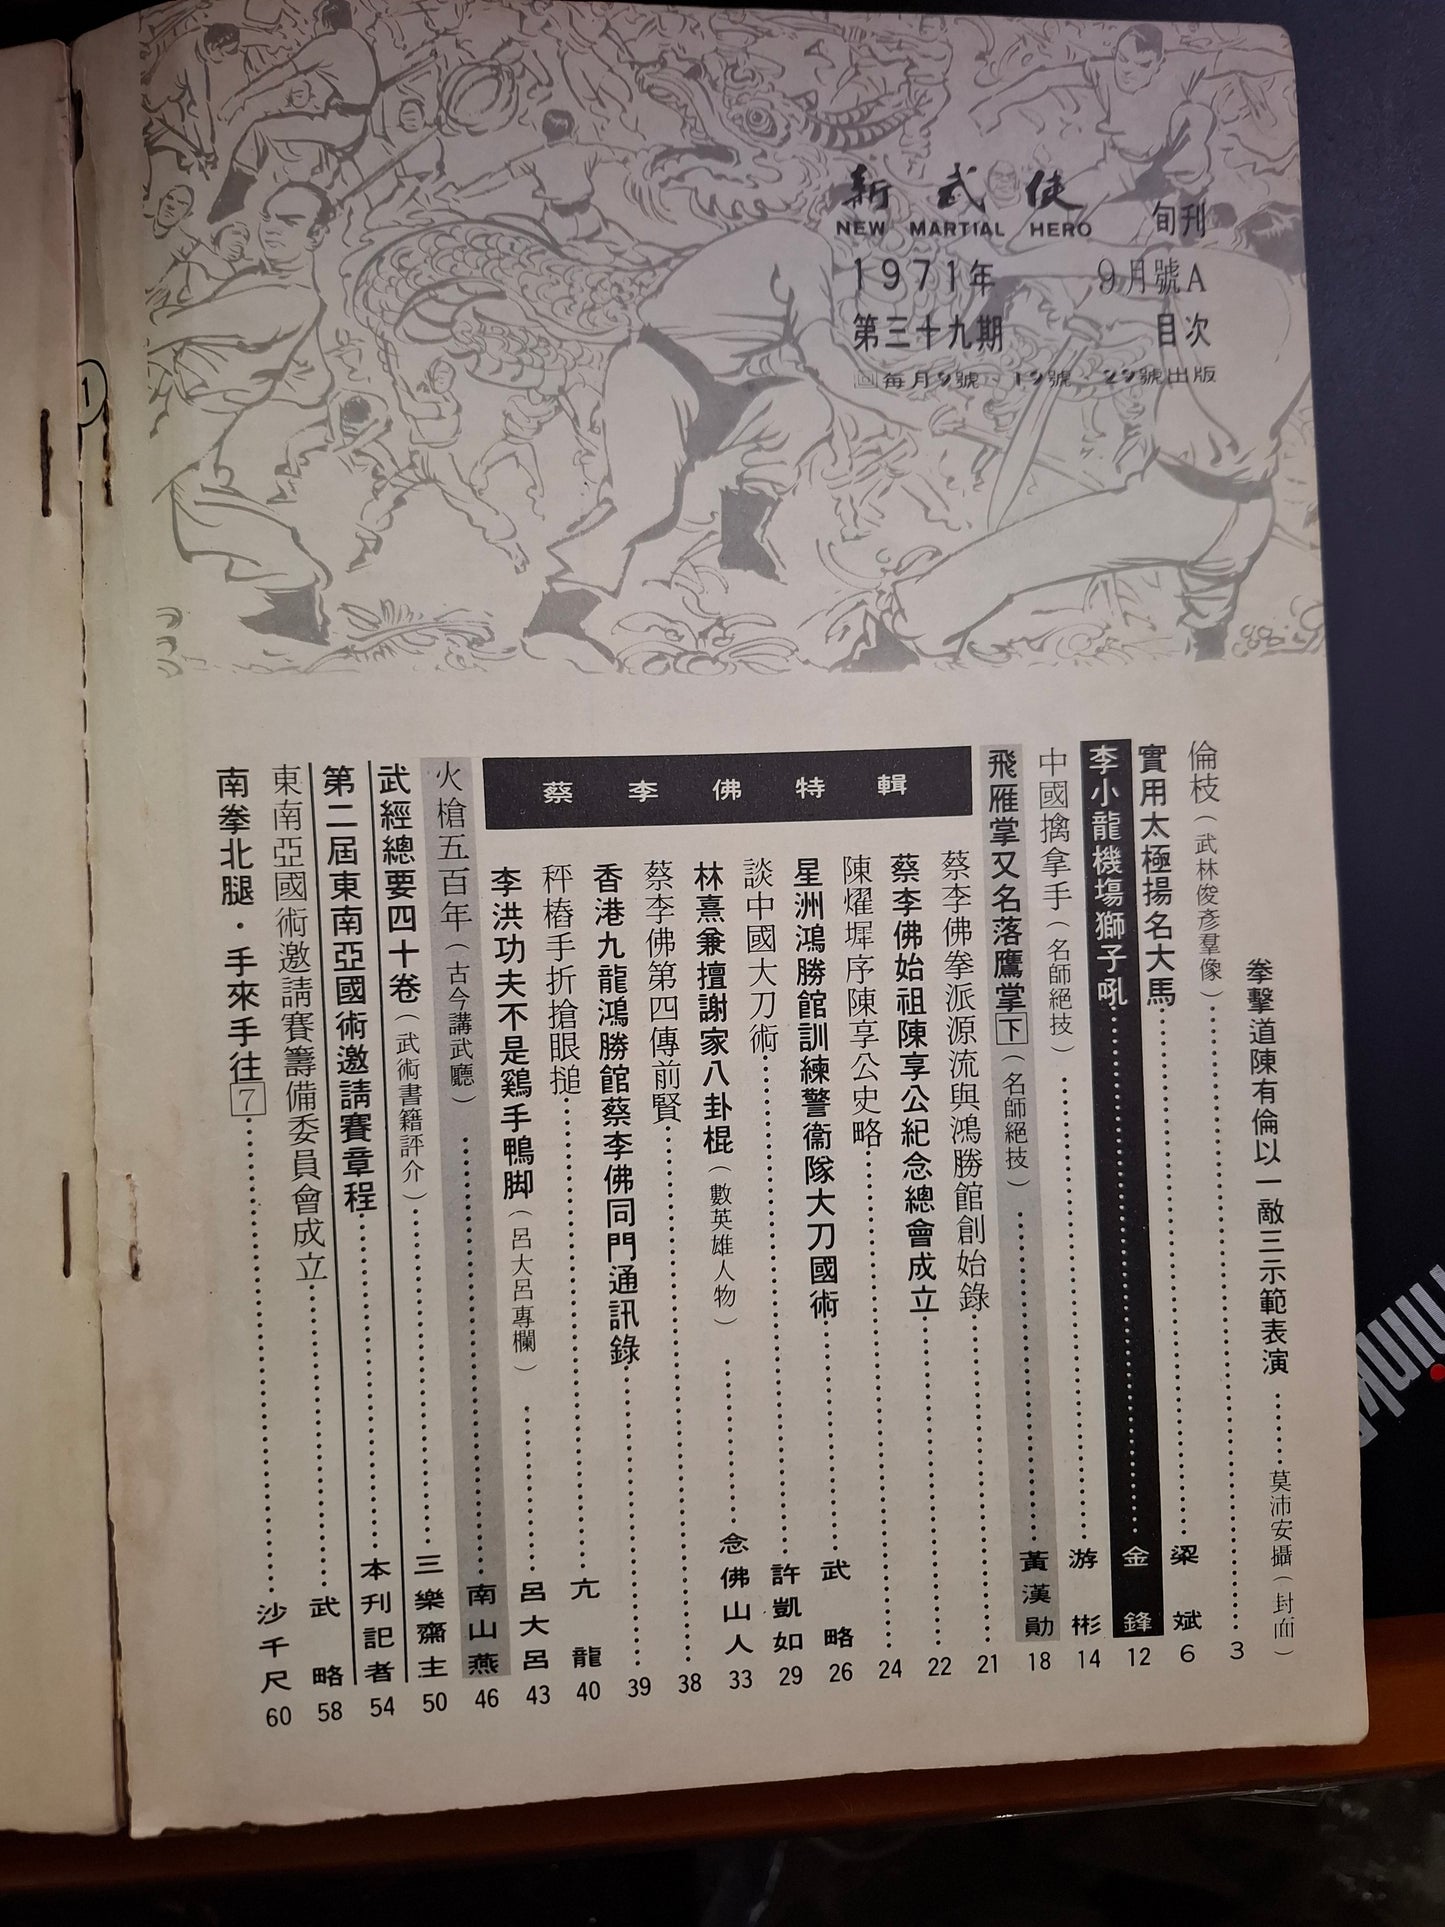 新武俠 旬刊
NEW MARTIAL HERO
1971年 9月號A
第三十九期 目次
每月9號 19號 29號出版
拳擊道陳有倫以一敵三示範表演……莫沛安攝(封面)
倫枝(武林俊彥羣像)……3
實用太極揚名大馬……梁斌 6
李小龍機場獅子吼……金鋒 12
中國擒拿手(名師絕技)……游彬 14
飛雁掌又名落鷹掌下(名師絕技)……黃漢勛 18
蔡李佛特輯
蔡李佛拳派源流與鴻勝館創始錄……21
蔡李佛始祖陳享公紀念總會成立……22
陳燿墀序陳享公史略……24
星洲鴻勝館訓練警衞隊大刀國術……武略 26
談中國大刀術……許凱如 29
林熹兼擅謝家八卦棍(數英雄人物)……念佛山人 33
蔡李佛第四傳前賢……38
香港九龍鴻勝館蔡李佛同門通訊錄……39
秤樁手折搶眼搥……亢龍 40
李洪功夫不是鷄手鴨脚(呂大呂專欄)……呂大呂 43
火槍五百年(古今講武廳)……南山燕 46
武經總要四十卷(武術書籍評介)……三樂齋主 50
第二屆東南亞國術邀請賽章程……本刊記者 54
東南亞國術邀請賽籌備委員會成立……武略 58
南拳北腿・手來手往7……沙千尺 60
1